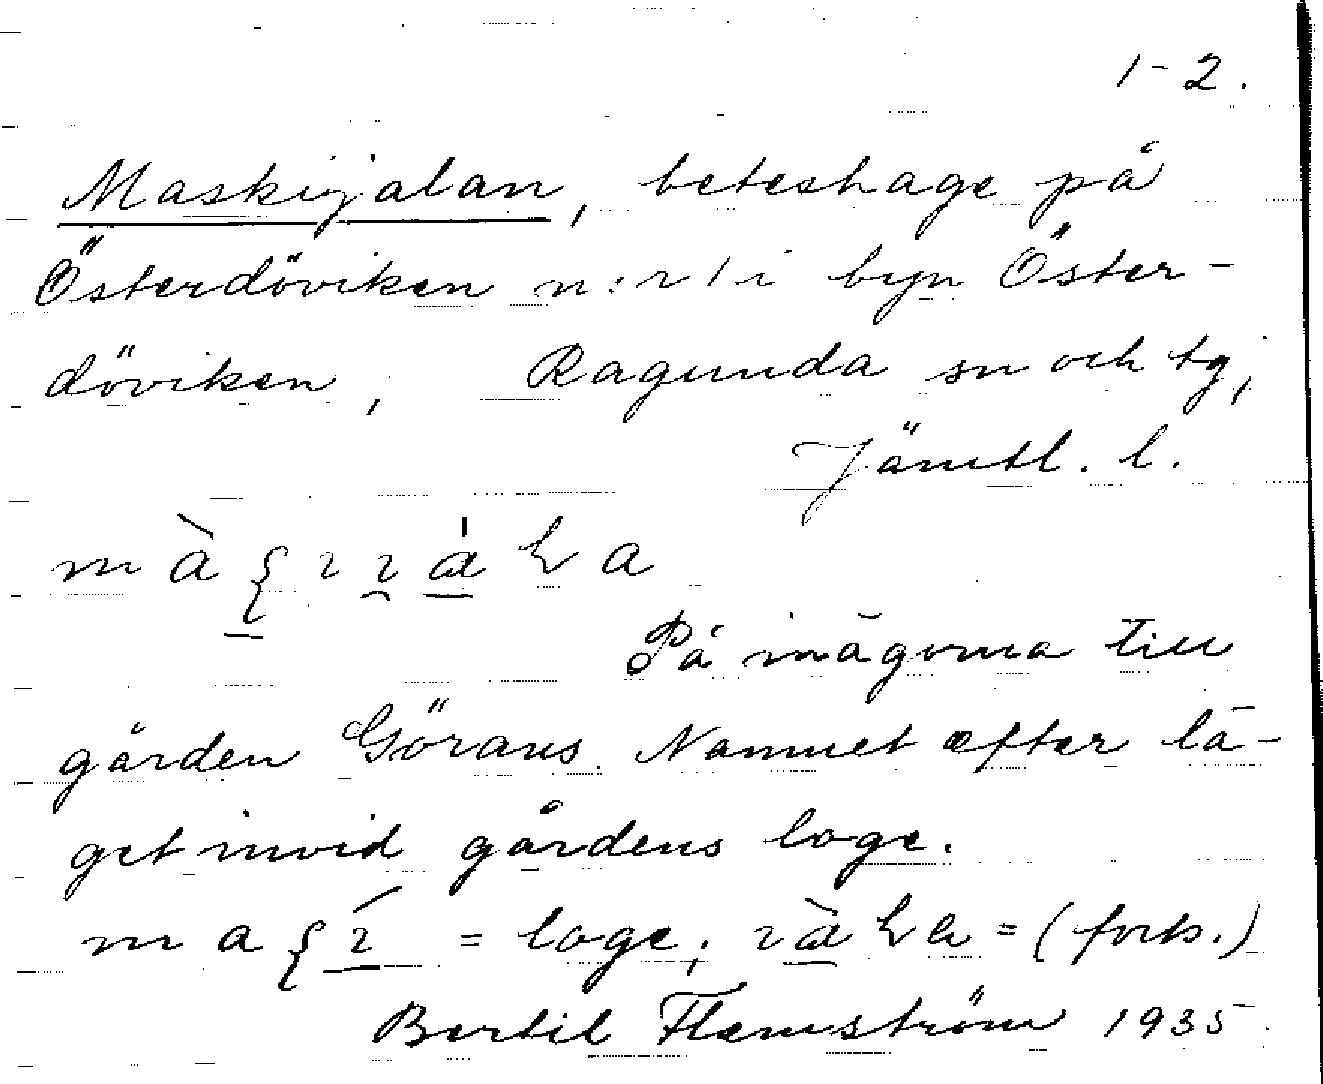 1-2.
Maskijalan, beteshage på
Österdöviken n:r 1 i byn Öster-
döviken, Ragunda sn och tg,
Jämtl. l.
På inägorna till
gården Görans. Namnet efter lä-
get invid gårdens loge.
= loge; = (forts.)
Bertil Flemström 1935